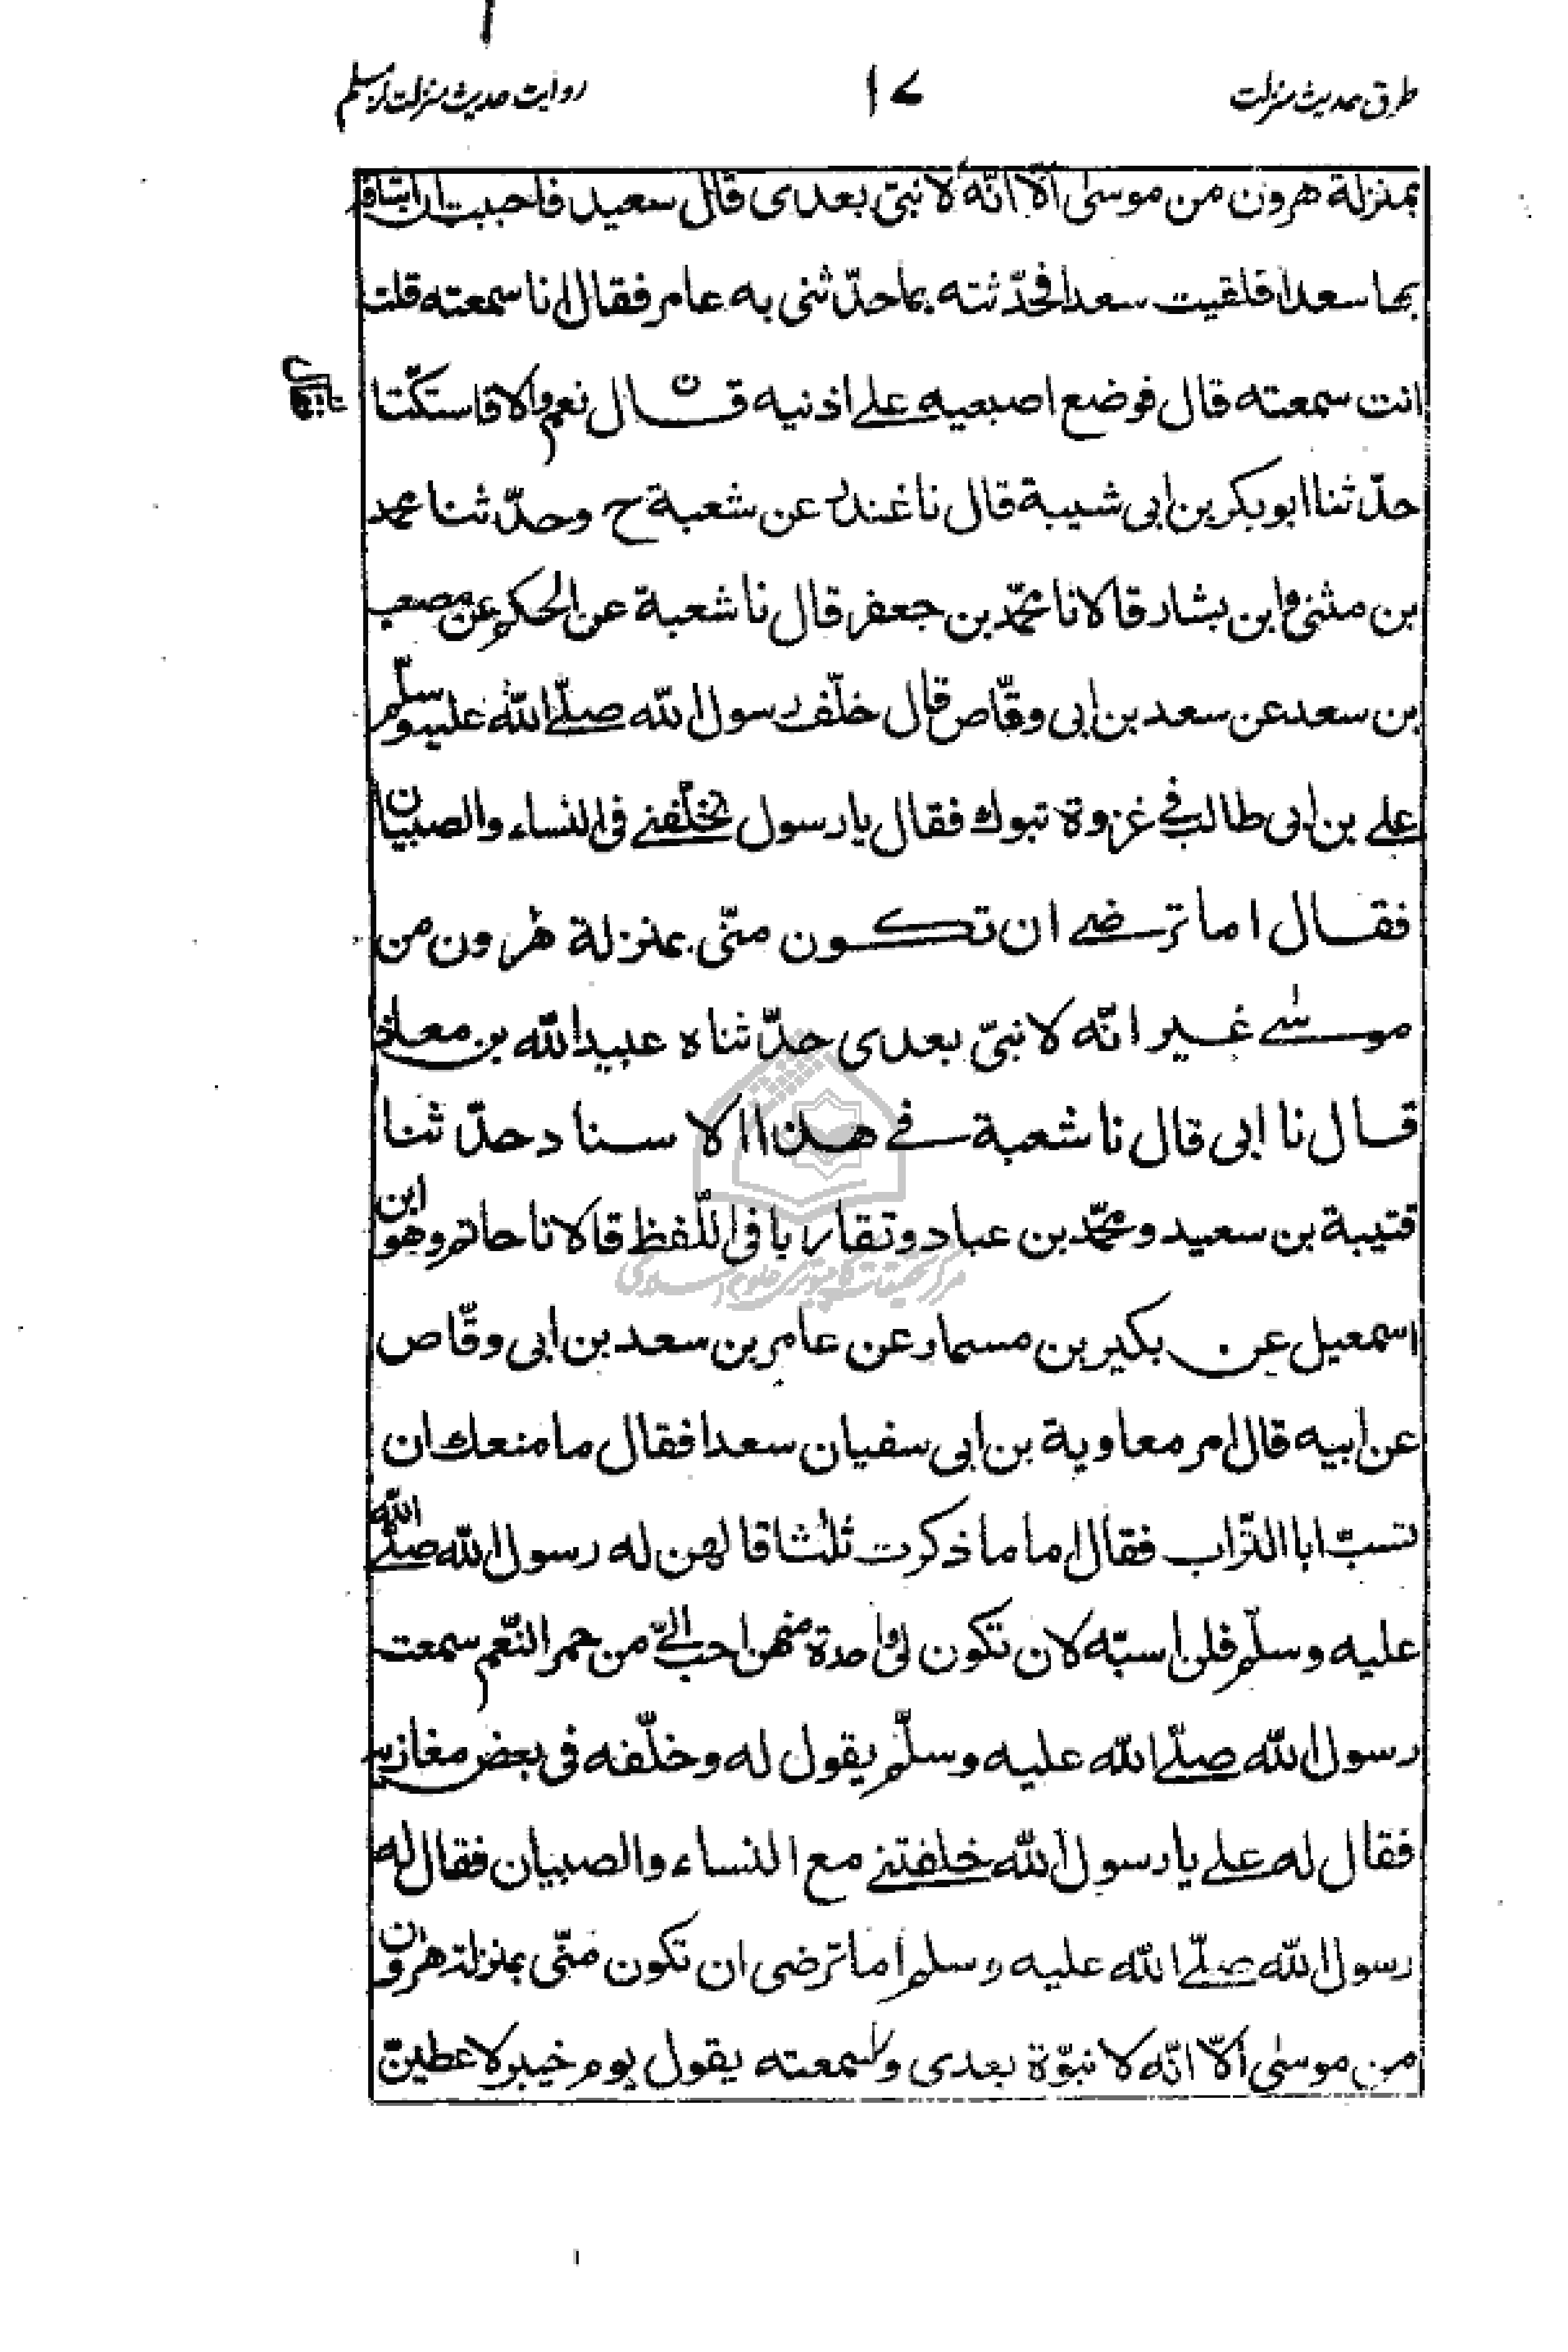 طرق حديث منزلت
۱۷
روايت حديث منزلت از مسلم
بمنزلة هرون من موسى الّا انّه لا نبيّ بعدى قال سعيد فاحببت ان اشافه
بها سعدا فلقيت سعدا فحدّثته بما حدّثنى به عامر فقال انا سمعته قلت
انت سمعته قال فوضع اصبعيه على اذنيه قال نعم والا فاستكّتا
حدّثنا ابو بكر بن ابى شيبة قال نا غندر عن شعبة ح وحدّثنا محمد
بن مثنى وابن بشار قالا نا محمّد بن جعفر قال نا شعبة عن الحكم عن مصعب
بن سعد عن سعد بن ابى وقّاص قال خلّف رسول الله صلّى الله عليه وسلّم
على بن ابى طالب في غزوة تبوك فقال يا رسول تخلّفنى فى النساء والصبيان
فقال اما ترضى ان تكون منّى بمنزلة هٰرون من
موسٰى غير انّه لا نبىّ بعدى حدّثناه عبيد الله بن معاذ
قال نا ابى قال نا شعبة فى هذا الاسناد حدّثنا
قتيبة بن سعيد ومحمّد بن عباد وتقاربا فى اللّفظ قالا نا حاتم وهو ابن
اسمعيل عن بكير بن مسمار عن عامر بن سعد بن ابى وقّاص
عن ابيه قال امر معاوية بن ابى سفيان سعدا فقال ما منعك ان
تسبّ ابا التّراب فقال اما ما ذكرت ثلٰثا قالهن له رسول الله صلّى الله
عليه وسلّم فلن اسبّه لان تكون لى واحدة منهن احب الىّ من حمر النّعم سمعت
رسول الله صلّى الله عليه وسلّم يقول له وخلّفه فى بعض مغازيه
فقال له على يا رسول الله خلفتنى مع النساء والصبيان فقال له
رسول الله صلّى الله عليه وسلم اما ترضى ان تكون منّى بمنزلة هٰرون
من موسٰى الّا انّه لا نبوّة بعدى وسمعته يقول يوم خيبر لاعطينّ
مركز تحقيقات كامپيوترى علوم اسلامى